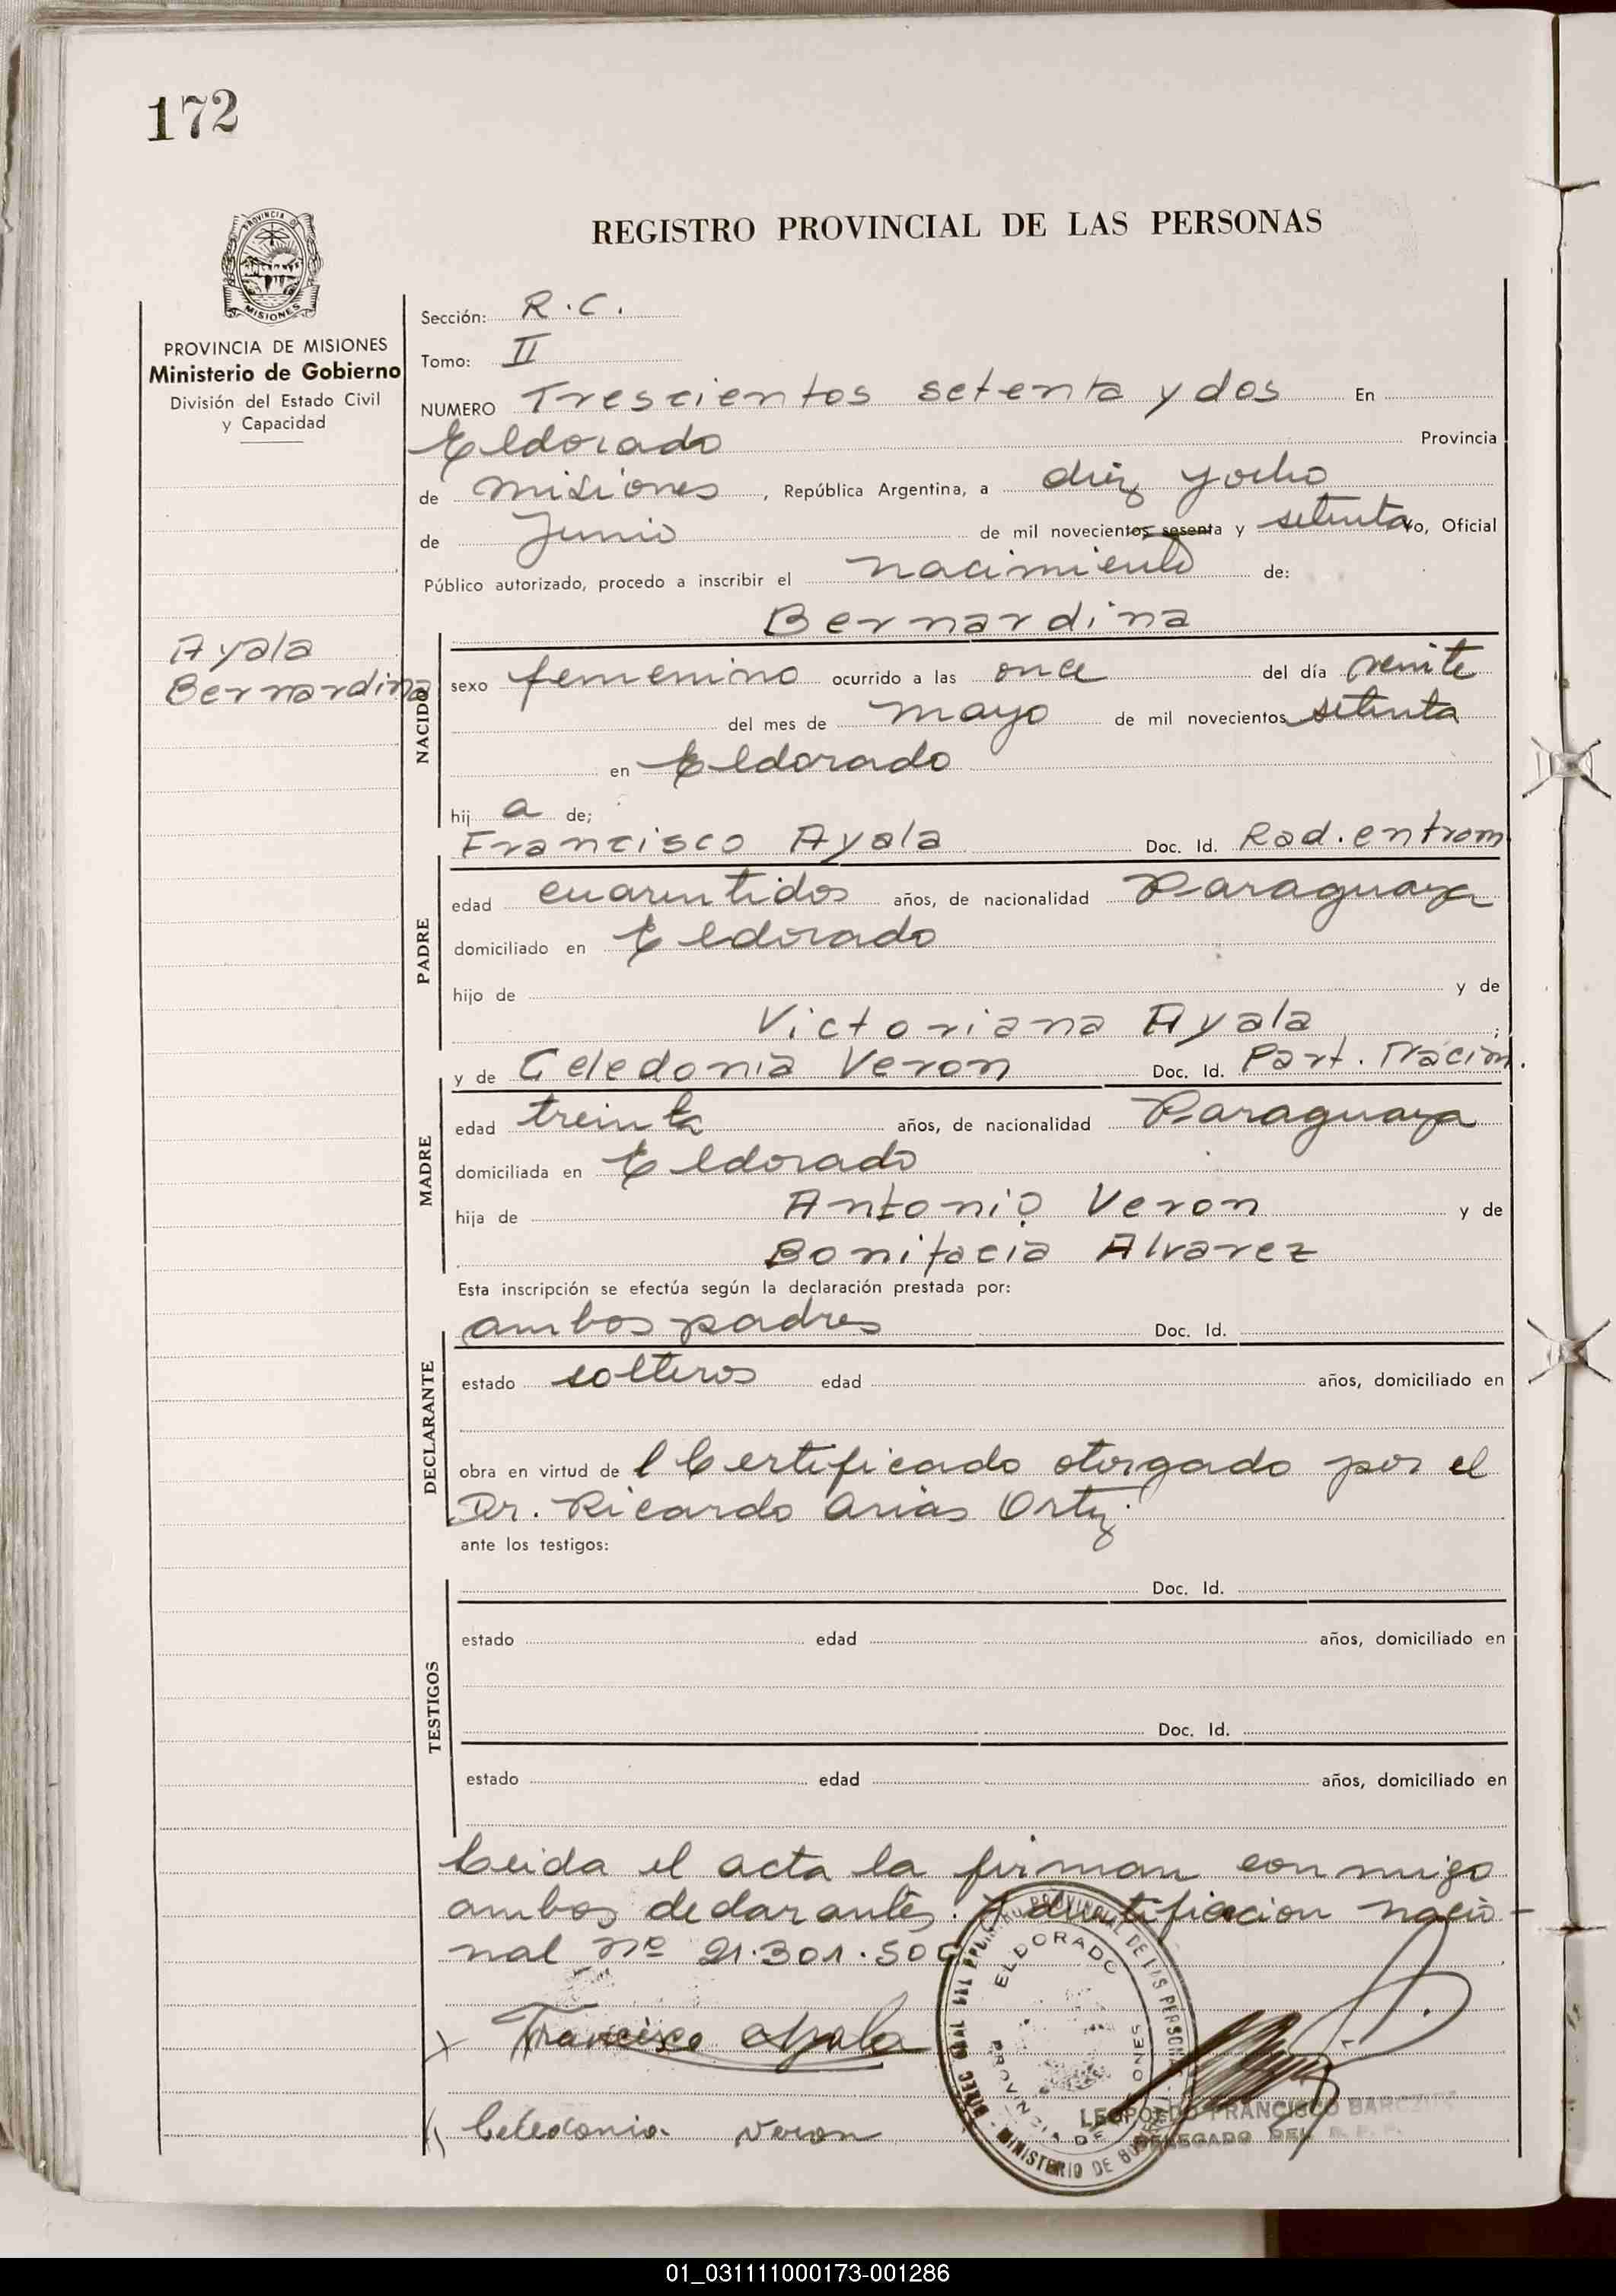 172
REGISTRO PROVINCIAL DE LAS PERSONAS
PROVINCIA DE
MISIONES
PROVINCIA DE MISIONES
Ministerio de Gobierno
División del Estado Civil
y Capacidad
Ayala
Bernardina
Sección: R.C.
Tomo: II
NUMERO Trescientos setenta y dos En
Eldorado Provincia
de Misiones, República Argentina, a diez y ocho
de Junio de mil novecientos sesenta y setenta yo, Oficial
Público autorizado, procedo a inscribir el nacimiento de:
Bernardina
NACIDO
sexo femenino ocurrido a las once del día veinte
del mes de mayo de mil novecientos setenta
en Eldorado
hij a de;
Francisco Ayala Doc. Id. Rad. entram
PADRE
edad cuarentidos años, de nacionalidad Paraguaya
domiciliado en Eldorado
hijo de y de
Victoriana Ayala ;
y de Celedonia Veron Doc. Id. Part. Nacim.
MADRE
edad treinta años, de nacionalidad Paraguaya
domiciliada en Eldorado
hija de Antonio Veron y de
Bonifacia Alvarez
Esta inscripción se efectúa según la declaración prestada por:
ambos padres Doc. Id.
DECLARANTE
estado solteros edad años, domiciliado en
obra en virtud de l Certificado otorgado por el
Dr. Ricardo Arias Ortiz
ante los testigos:
Doc. Id.
TESTIGOS
estado edad años, domiciliado en
Doc. Id.
estado edad años, domiciliado en
Leida el acta la firman conmigo
ambos declarantes. Identificacion nacio-
nal nº 21.301.50
Francisco Ayala
Celedonia Veron
ELDORADO
PROVINCIA DE MISIONES
MINISTERIO DE
LEOPOLDO FRANCISCO
DELEGADO DEL R. P. P.
01_031111000173-001286